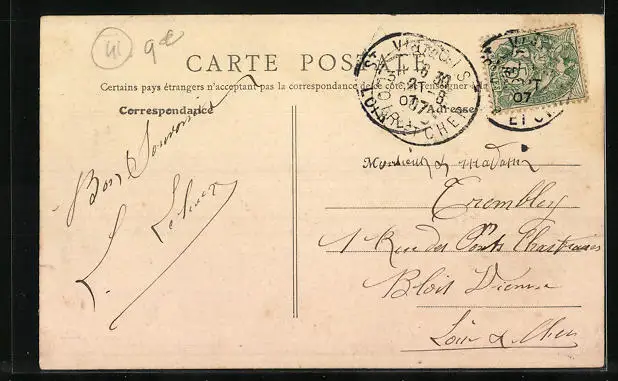 41 9e
CARTE POSTALE
Certains pays étrangers n'acceptant pas la correspondance de ce côté, se renseigner à la
Correspondance
Adresse
Bon Souvenir
L.
ST VICTOR
8 30
OT
07
LOIR ET CHER
07
ET CH
Monsieur & Madame
Trembley
1 Rue des Ponts Chartrains
Blois Vienne
Loir & Cher